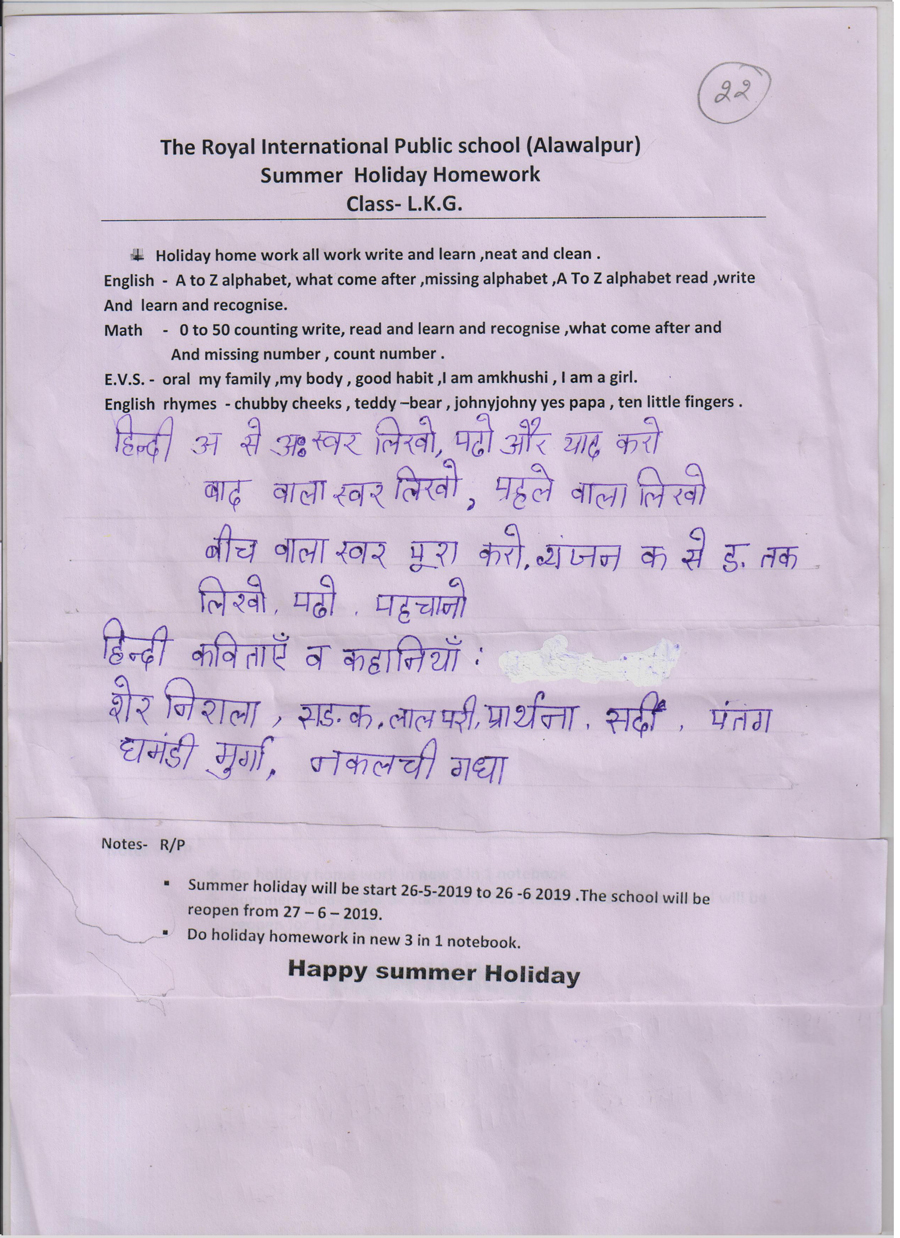 22
The Royal International Public school (Alawalpur)
Summer Holiday Homework
Class- L.K.G.
Holiday home work all work write and learn ,neat and clean .
English - A to Z alphabet, what come after ,missing alphabet ,A To Z alphabet read ,write
And learn and recognise.
Math - 0 to 50 counting write, read and learn and recognise ,what come after and
And missing number , count number .
E.V.S. - oral my family ,my body , good habit ,I am amkhushi , I am a girl.
English rhymes - chubby cheeks , teddy –bear , johnyjohny yes papa , ten little fingers .
हिन्दी अ से अः स्वर लिखो, पढो और याद करो
बाद वाला स्वर लिखो, पहले वाला लिखो
बीच वाला स्वर पूरा करो, व्यंजन क से ड. तक
लिखो, पढो, पहचानो
हिन्दी कविताएँ व कहानियाँ :
शेर निराला, सड.क, लाल परी, प्रार्थना, सर्दी, पंतग
घमंडी मुर्गा, नकलची गधा
Notes- R/P
▪ Summer holiday will be start 26-5-2019 to 26 -6 2019 .The school will be
reopen from 27 – 6 – 2019.
▪ Do holiday homework in new 3 in 1 notebook.
Happy summer Holiday